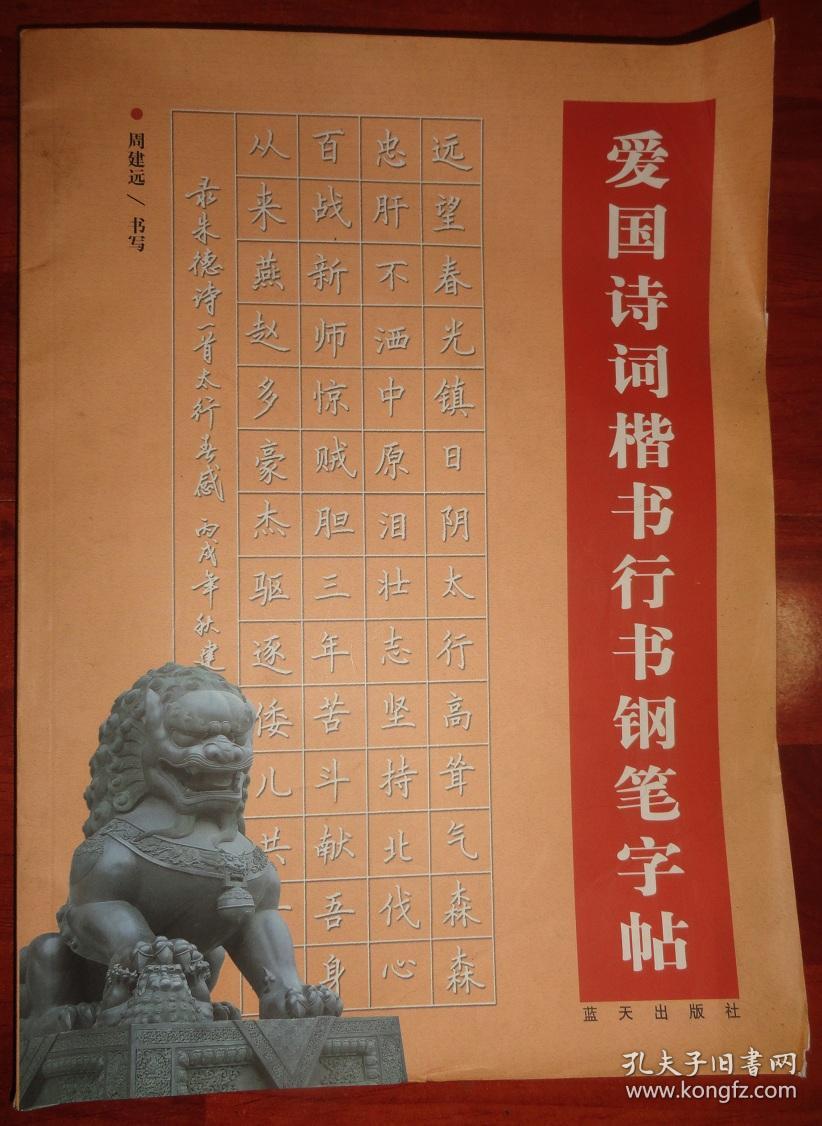 爱国诗词楷书行书钢笔字帖
远望春光镇日阴太行高耸气森森
忠肝不洒中原泪壮志坚持北伐心
百战新师惊贼胆三年苦斗献吾身
从来燕赵多豪杰驱逐倭儿共一
录朱德诗一首太行春感 丙戌年秋建
周建远/书写
蓝天出版社
孔夫子旧书网
www.kongfz.com